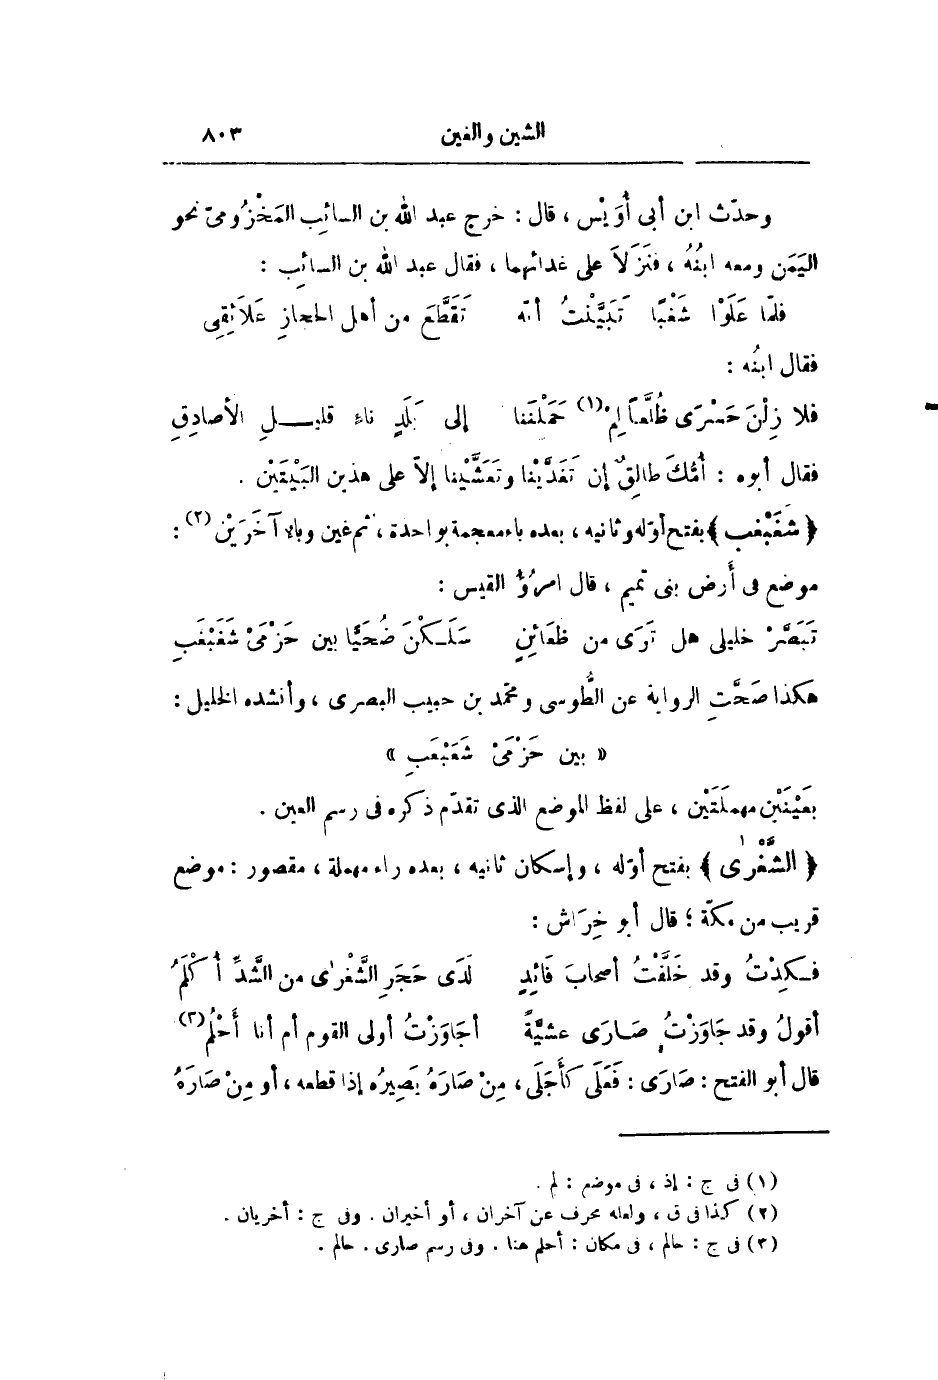 الشين والغين ٨٠٣
وحدّث ابن أبى أُوَيْس ، قال : خرج عبد الله بن السائِب المَخْزُومىّ نحو
اليَمَن ومعه ابنُهُ ، فنَزَلاَ على غدائهما ، فقال عبد الله بن السائِب :
فلمّا عَلَوْا شَغْبًا تَبَيَّنْتُ أنّه تَقَطَّعَ من أهل الحجازِ عَلاَئِقِى
فقال ابنُه :
فلا زِلْنَ حَسْرَى ظُلَّعاً لِمْ(١) حَمَلْنَنا إلى بَلَدٍ ناءٍ قليــلِ الأصادِقِ
فقال أبوه : أمّكَ طالِقٌ إن تَغَدَّيْنا وتَعَشَّيْنا إلاّ على هذين البَيْتَيْن .
﴿ شَغَبْغَب ﴾ بفتح أوّله وثانيه ، بعده باء معجمة بواحدة ، ثم غين وباء آخَرَيْن(٢) :
موضع فى أرض بنى تميم ، قال امرؤُ القيس :
تَبَصَّرْ خليلى هل تَرَى من ظَعَائنٍ سَلَـكْنَ ضُحَيًّا بين حَزْمَىْ شَغَبْغَبِ
هكذا صَحَّتِ الرواية عن الطُّوسى ومحمّد بن حبيب البصرى ، وأنشده الخليل :
« بين حَزْمَىْ شَعَبْعَبِ »
بعَيْنَيْنِ مهملَتَيْن ، على لفظ الموضع الذى تقدّم ذكره فى رسم العين .
﴿ الشَّغْرٰى ﴾ بفتح أوّله ، وإسكان ثانيه ، بعده راء مهملة ، مقصور : موضع
قريب من مكّة ؛ قال أبو خِرَاش :
فـكِدْتُ وقد خَلَّفْتُ أصحابَ فَائِدٍ لَدَى حَجَرِ الشَّغْرٰى من الشَّدِّ أُكْلَمُ
أقولُ وقد جَاوَزْتُ صَـارَى عشيّةً أجَاوَزْتُ أولى القوم أم أنا أَحْلُمُ(٣)
قال أبو الفتح : صَارَى : فَعَلَى كَأَجَلَى ، مِنْ صَارَهُ يَصِيرُه إذا قطعه ، أو مِنْ صَارَهُ
(١) فى ج : إذ ، فى موضع : لم .
(٢) كذا فى ق ، ولعله محرف عن آخران ، أو أخيران . وفى ج : أخريان .
(٣) فى ج : حالم ، فى مكان : أحلم هنا . وفى رسم صارى . حالم .